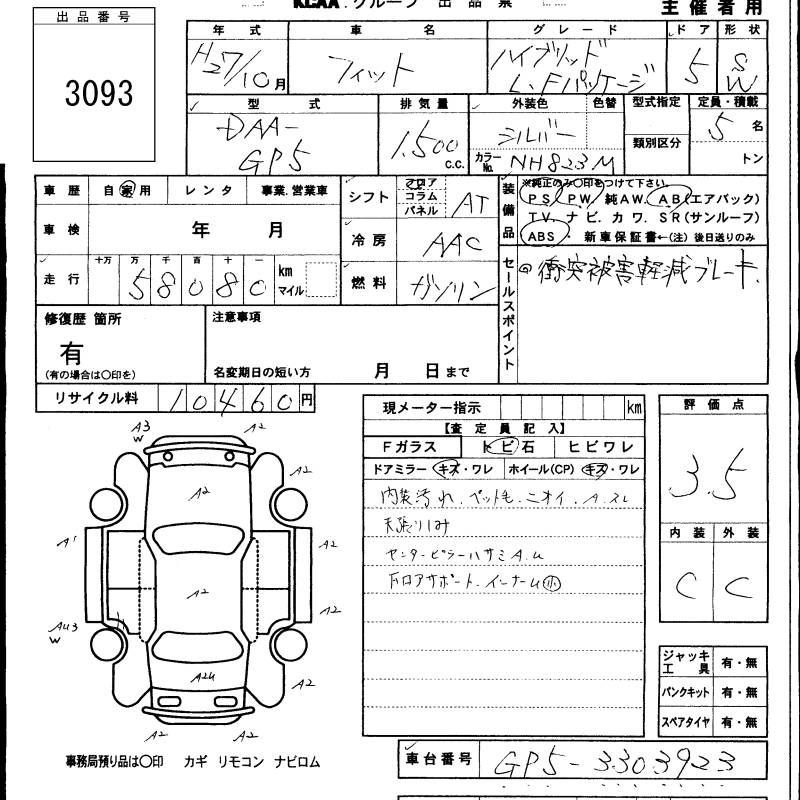 KCAA グループ 出品票 主催者用
出品番号
3093
年式 車名 グレード ドア 形状
H27/10月 フィット ハイブリッド L.Fパッケージ 5 SW
型式 排気量 外装色 色替 型式指定 定員・積載
DAA-GP5 1,500 c.c. シルバー 類別区分 5 名
カラーNo. NH823M トン
車歴 自家用 レンタ 事業.営業車
シフト フロア コラム パネル AT
装備品 ※純正のみ○印をつけて下さい。
PS. PW. 純AW. AB(エアバック)
TV. ナビ. カワ. SR(サンルーフ)
ABS ・ 新車保証書←(注)後日送りのみ
車検 年 月
冷房 AAC
走行 十万 万 千 百 十 一
58080 km マイル
燃料 ガソリン
セールスポイント
衝突被害軽減ブレーキ.
修復歴 箇所
有
(有の場合は○印を)
注意事項
名変期日の短い方 月 日まで
リサイクル料 10460円
現メーター指示 km
評価点
3.5
【査定員記入】
Fガラス トビ石 ヒビワレ
ドアミラー キズ・ワレ ホイール(CP) キズ・ワレ
内装汚れ.ペット毛.ニオイ.A.スレ
天張りしみ
センターピラーハサミA.U
FロアサポートインナーU小
内装 外装
C C
A3
W
A2
A2
A2
A1
A2
A2
A2
AU3
W
A2U
A2
A2
A2
ジャッキ工具 有・無
パンクキット 有・無
スペアタイヤ 有・無
事務局預り品は○印 カギ リモコン ナビロム
車台番号 GP5-3303923